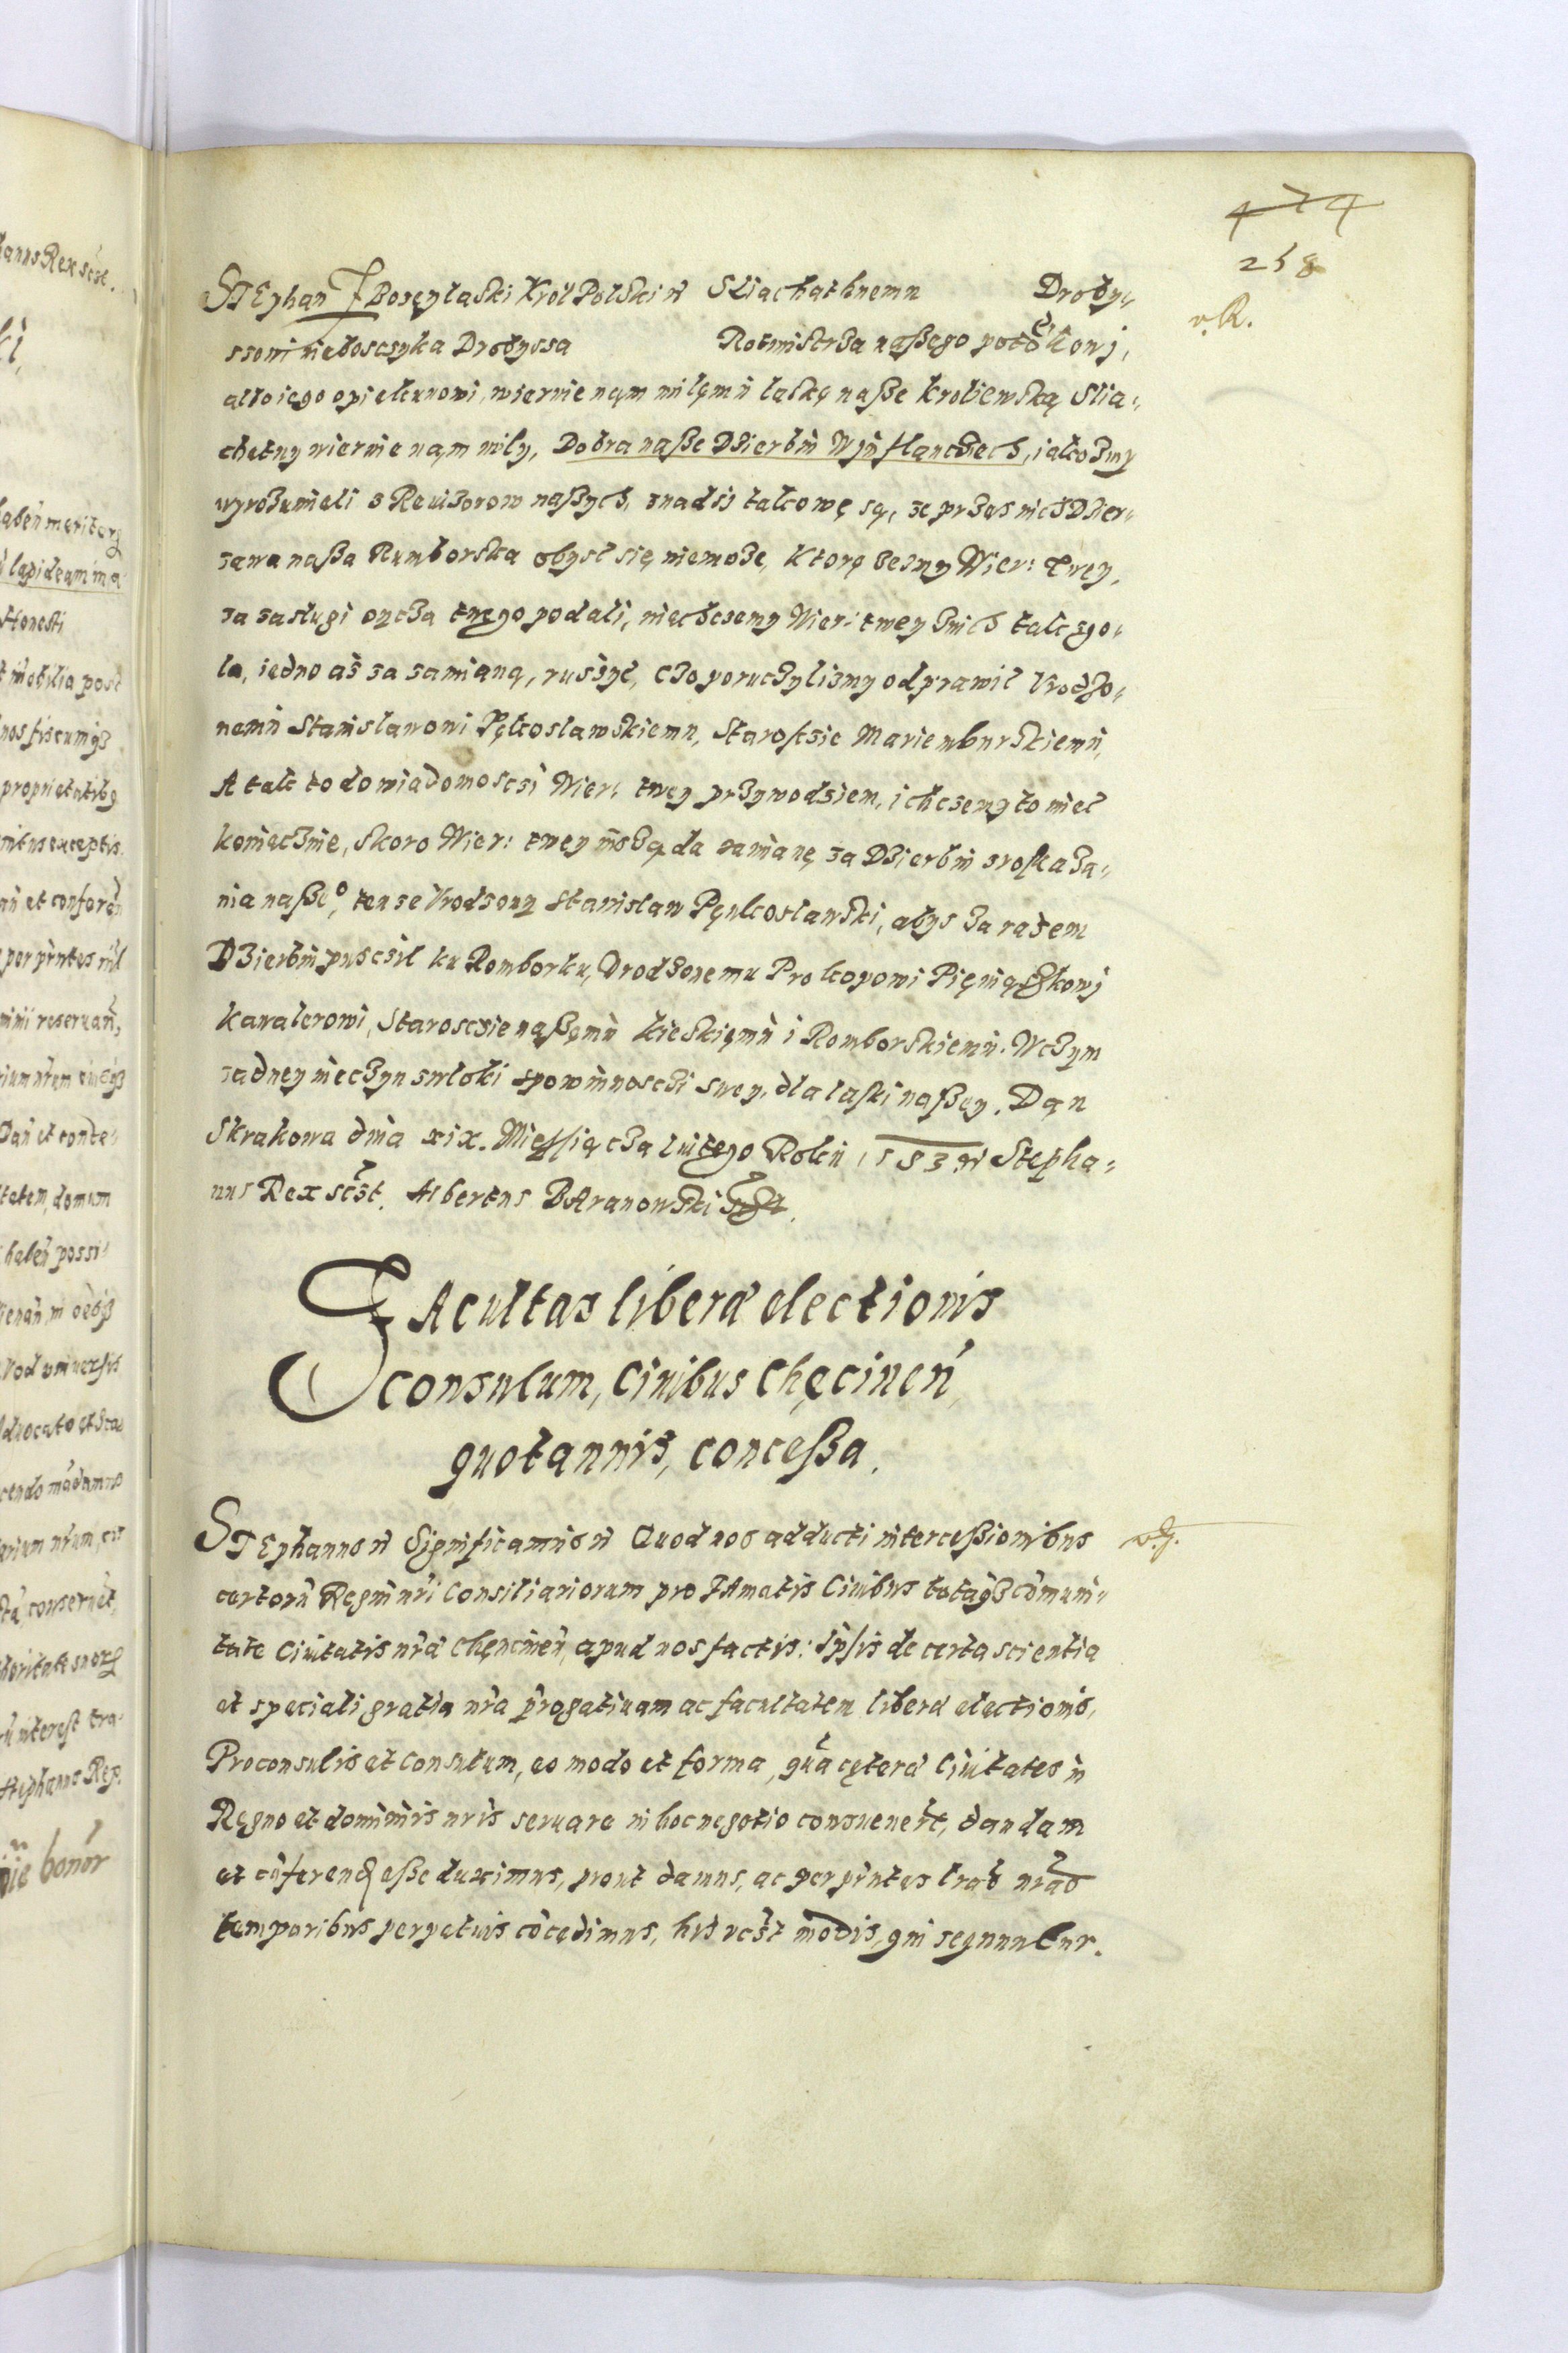 474
258
v. R.
STEphan Z Bozeÿ laski Krol Polski etc Sliachathnemu Drobÿ-
ssowi niebosczyka Drobyssa Rotmistrza naßego poto kowj,
albo iego opiekunowi, wiernie nąm miłęmu laskę naße kroliewską Slia-
chetny wiernie nąm miły, Dobra naße Dzierbin W Inflanciech, iakozmy
wyrozumieli z Reuizorow naßych, znadź takowę są, ze przez nich Dzier-
zawa naßa Rumborska obyst się niemoze, Ktorę bezmy Wier: twey,
za zaslugi oycza twego podali, niechcemy Wier: twey znich tak zgo-
la, iedno aż za zamianą, ruszyć, czo poruczylizmy odprawić Vrodzo-
nemu Stanislawowi Pękoslawskiemu, Starosczie Marienburskiemu,
A tak to do wiadomosczi Wier: twey przywodziem, i chczemy to mieć
koniecznie, skoro Wier: twey inszą da zamianę za Dzierbin z roskaza-
nia naße°, tenze Vrodzony Stanislaw Pękoslawski, abys zarazem
Dzierbin pusczil ku Romborku, Vrodzonemu Prokopowi Pieniązkowj
kawalerowi, Starosczie naßęmu kieskięmu i Romborskiemu. W czym
zadney nieczyn zwloki z powinnosczi swey, dla laski naßey. Dąn
Skrakowa dnia xix. Miessiącza lutego Roku 1583 etc Stepha-
nus Rex scst. Albertus BAranowski
FAcultas liberae electionis
consulum, Ciuibus Chęcinen
quotannis, conceßa.
STEphanus etc Significamus etc Quod nos adducti interceßionibus
certorū Regni nri Consiliariorum pro FAmatis Ciuibus totaq3 cōmuni-
tate Ciuitatis nrae Chęncinen, apud nos factis: Ipsis de certa scientia
et speciali gratia nra prrogatiuam ac facultatem liberae electionis,
Proconsulis et Consulum, eo modo et forma, qua cęterae Ciuitates in
Regno et dominiis nris seruare in hoc negotio consueuert, dandam
et cōferend eße duximus, prout damus, ac per prntes lras nras
temporibus perpetuis cōcedimus, his vcst modis, qui sequuntur.
v. f.